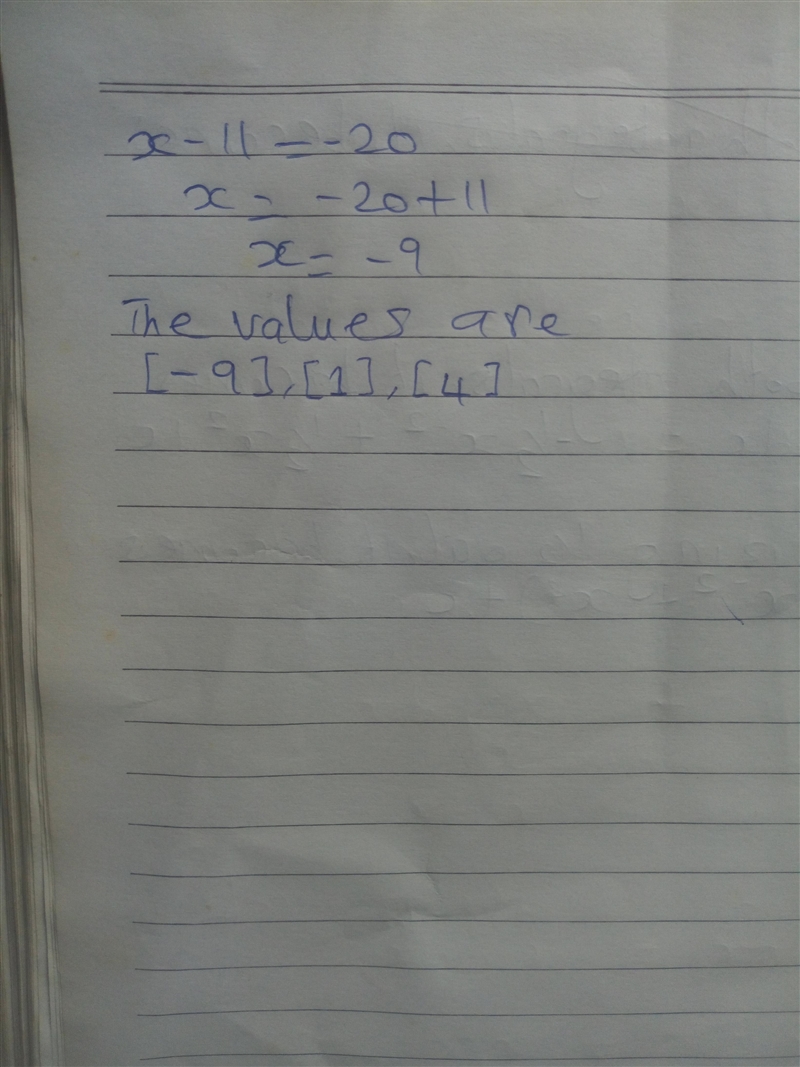 x - 11 = -20
x = -20 + 11
x = -9
The values are
[-9], [1], [4]